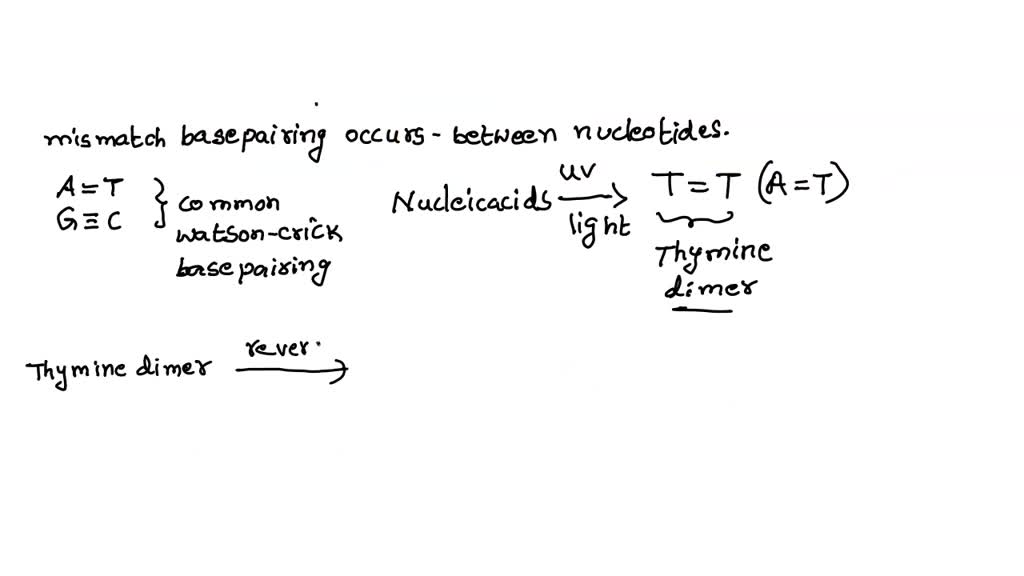 mismatch basepairing occurs - between nucleotides.
A=T
G≡C
common
watson-crick
basepairing
Nucleicacids
uv
light
T=T (A=T)
Thymine
dimer
Thymine dimer
rever